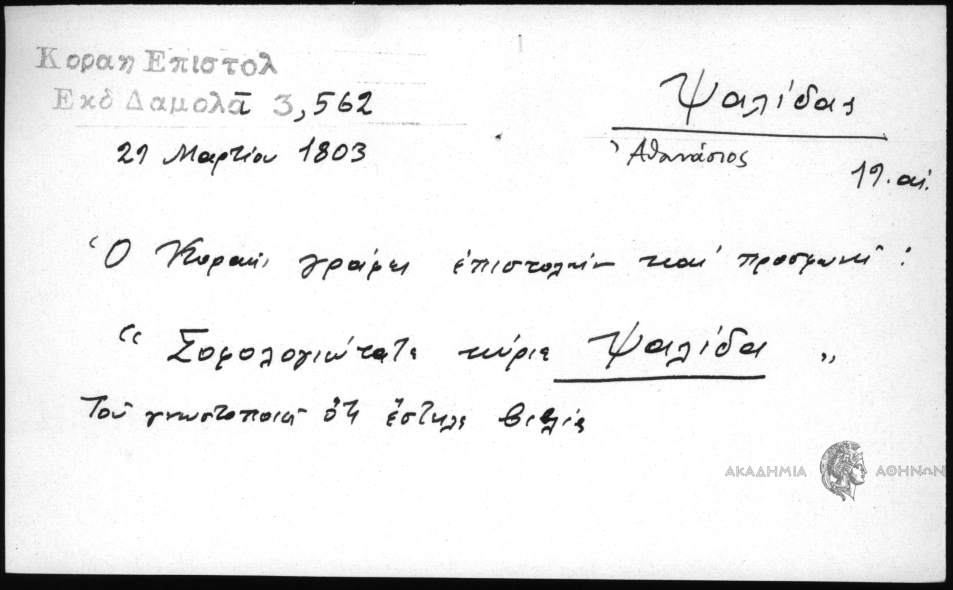 Κοραη Επιστολ
Εκδ Δαμολᾶ 3,562
29 Μαρτίου 1803
Ψαλίδας
Ἀθανάσιος
19. αἰ.
Ὁ Κοραῆς γράφει ἐπιστολὴν καὶ προσφωνεῖ :
“ Σοφολογιώτατε κύριε Ψαλίδα „
Τοῦ γνωστοποιεῖ ὅτι ἔστειλε βιβλία
ΑΚΑΔΗΜΙΑ ΑΘΗΝΩΝ